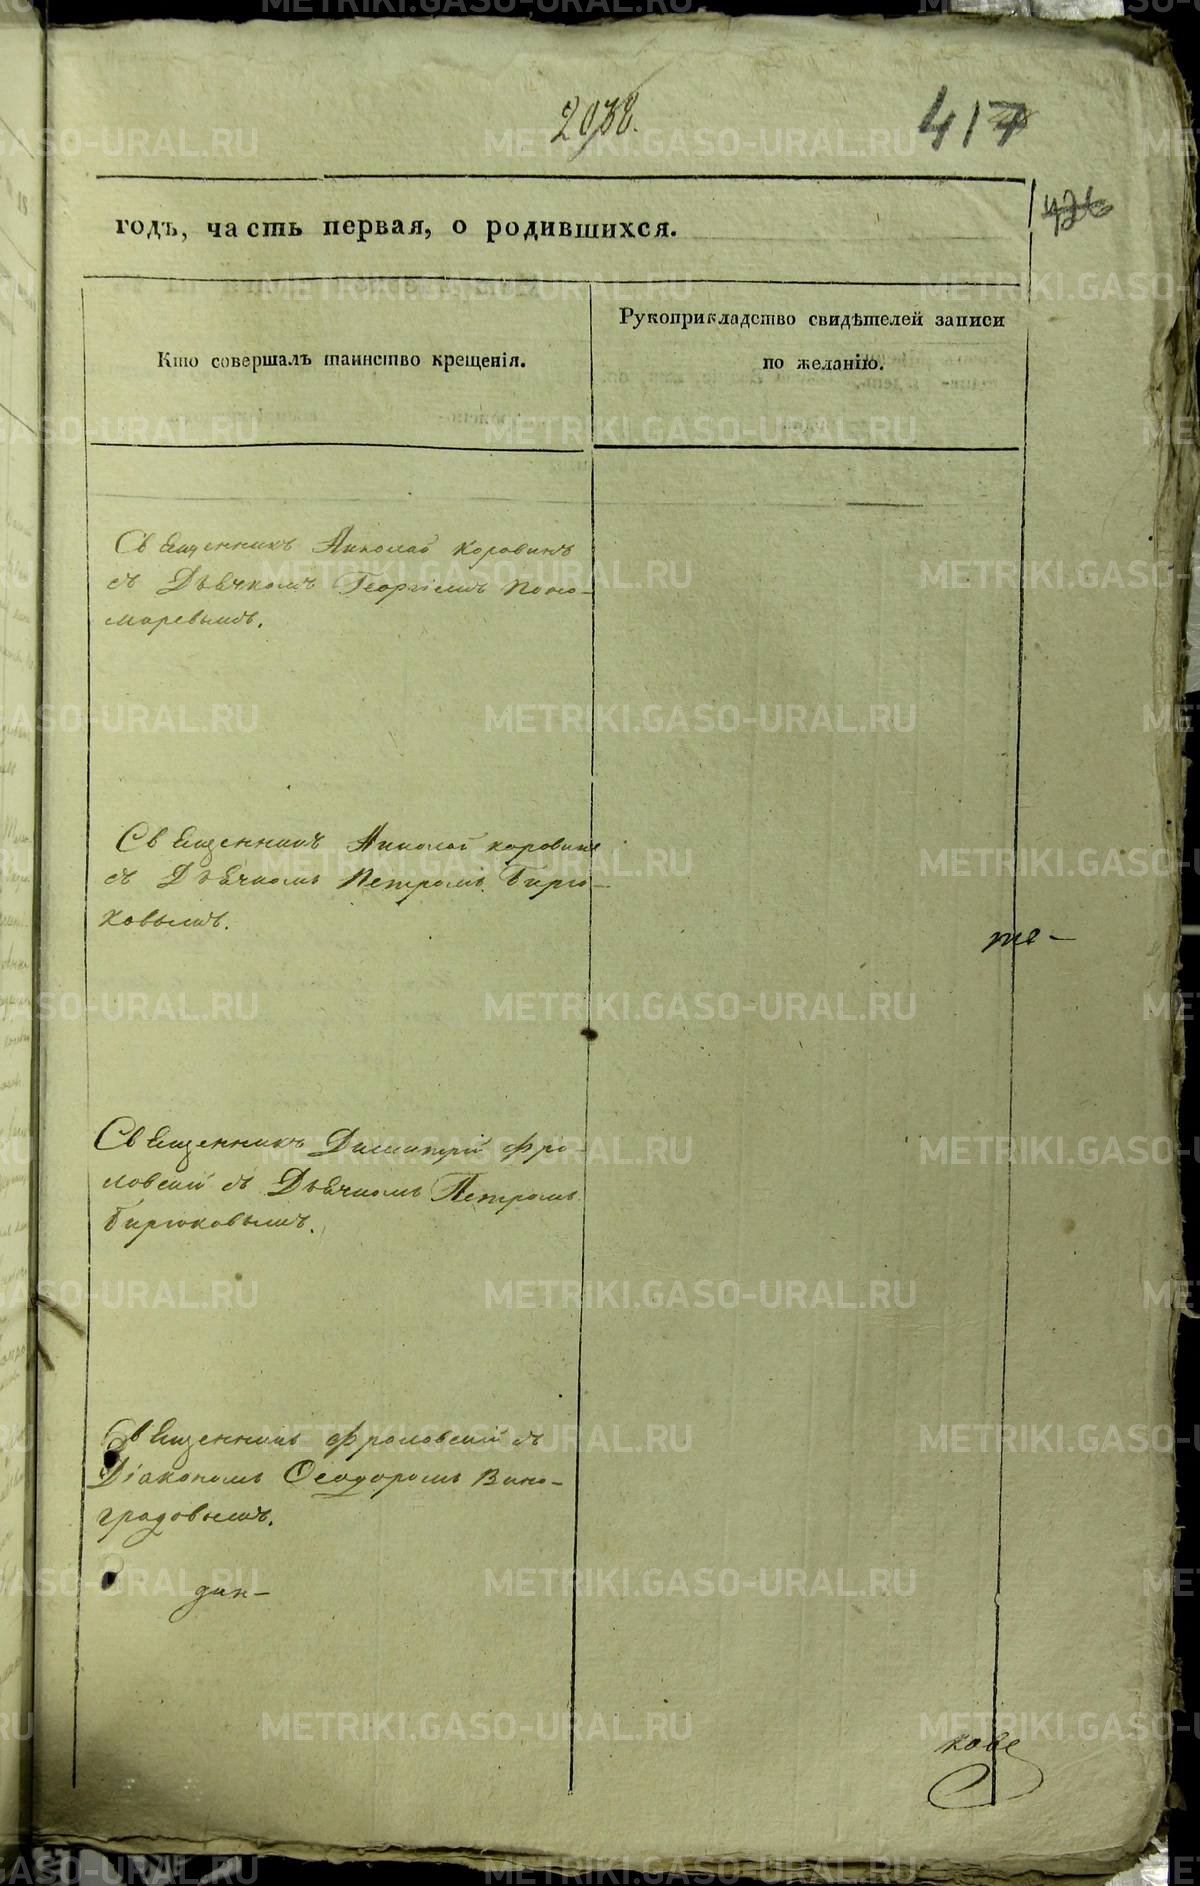 2038.
417
426
годъ, часть первая, о родившихся.
Кто совершалъ таинство крещенія.
Рукоприкладство свидѣтелей записи
по желанію.
Священникъ Николай Коровинъ
съ Дьячкомъ Георгіемъ Поно-
маревымъ.
Священникъ Николай Коровинъ
съ Дьячкомъ Петромъ Бирю-
ковымъ.
же-
Священникъ Димитрій Фро-
ловскій съ Дьячкомъ Петромъ
Бирюковымъ.
Священникъ Фроловскій съ
Діакономъ Ѳеодоромъ Вино-
градовымъ.
дин-
кове
METRIKI.GASO-URAL.RU